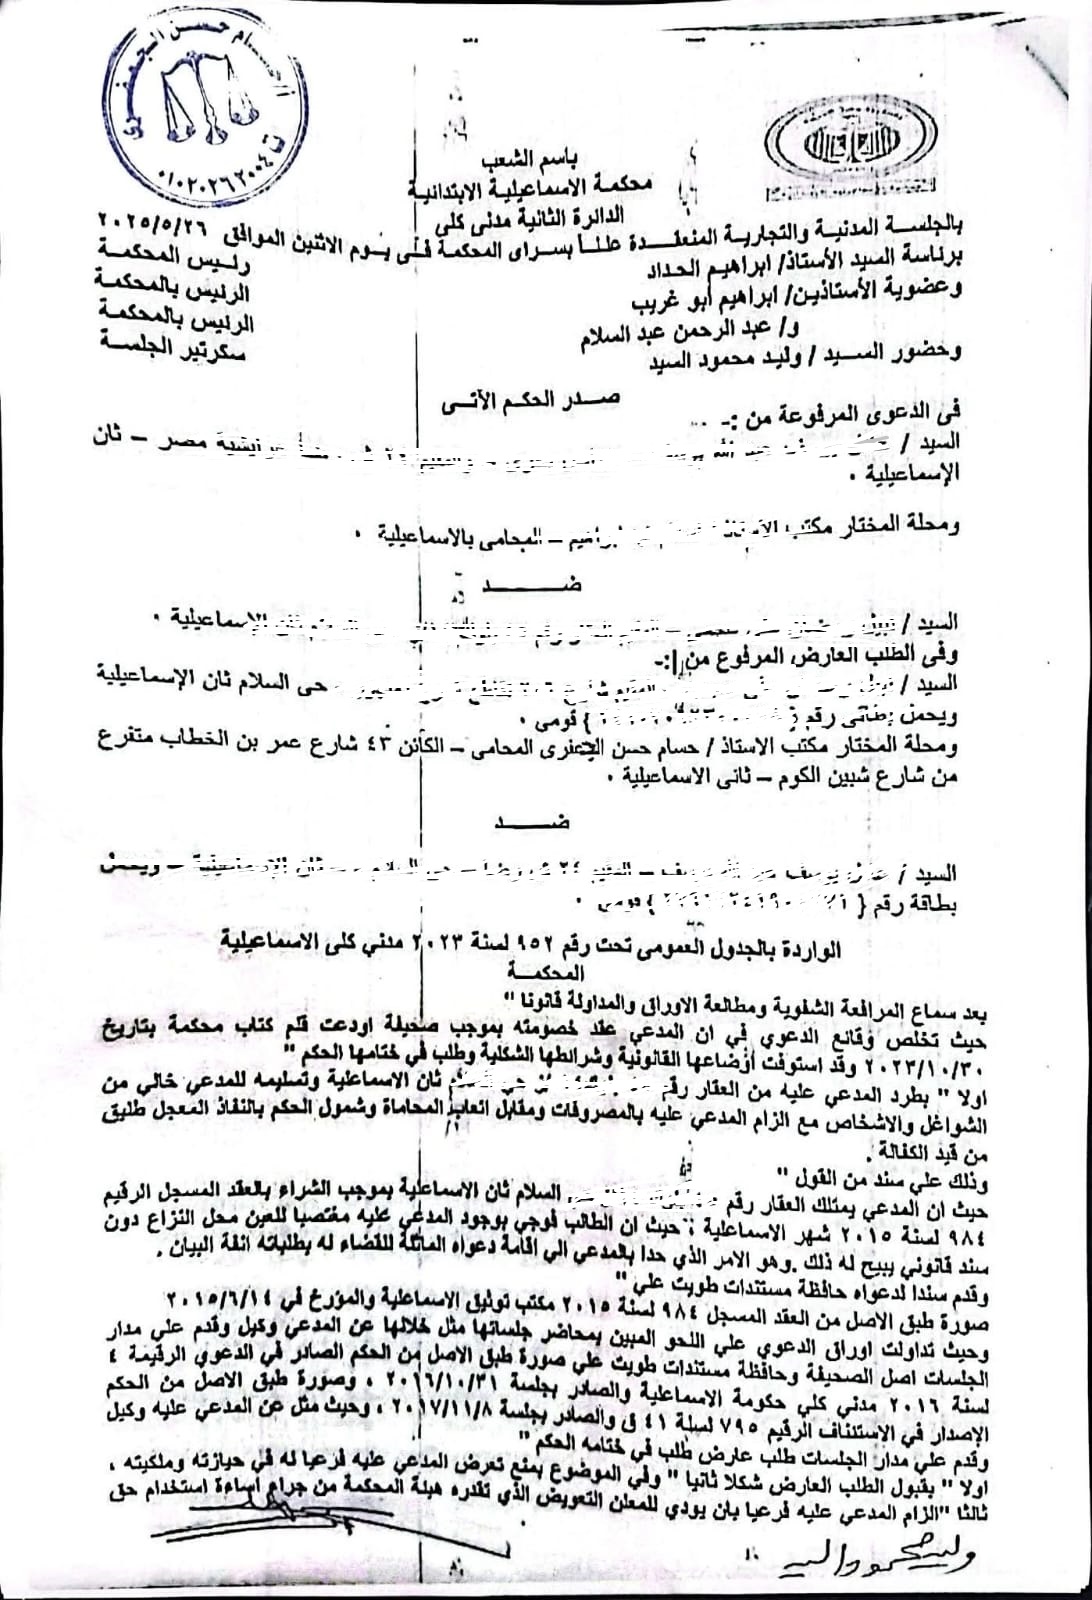 حسام حسن الجعفري
ت ٠١٠٢٠٢٦٢٠٠٤
باسم الشعب
محكمة الاسماعيلية الابتدائية
الدائرة الثانية مدنى كلى
بالجلسة المدنية والتجارية المنعقدة علناً بسراى المحكمة فى يوم الاثنين الموافق ٢٠٢٥/٥/٢٦
برئاسة السيد الأستاذ/ ابراهيم الحداد رئيس المحكمة
وعضوية الأستاذين/ ابراهيم أبو غريب الرئيس بالمحكمة
و/ عبد الرحمن عبد السلام الرئيس بالمحكمة
وحضور السيد / وليد محمود السيد سكرتير الجلسة
صدر الحكم الآتى
فى الدعوى المرفوعة من :-
السيد / مصر – ثان
الإسماعيلية .
ومحلة المختار مكتب الأستاذ ابراهيم – المحامى بالاسماعيلية .
ضد
السيد / الإسماعيلية .
وفى الطلب العارض المرفوع من :-
السيد / حى السلام ثان الإسماعيلية
ويحمل بطاقى رقم { } قومى .
ومحلة المختار مكتب الاستاذ / حسام حسن الجعفرى المحامى – الكائن ٤٣ شارع عمر بن الخطاب متفرع
من شارع شبين الكوم – ثانى الاسماعيلية .
ضد
السيد / يوسف – المقيم ٢٤ – حى السلام – ثان الإسماعيلية – ويحمل
بطاقة رقم { } قومى .
الواردة بالجدول العمومى تحت رقم ٩٥٢ لسنة ٢٠٢٣ مدني كلى الاسماعيلية
المحكمة
بعد سماع المرافعة الشفوية ومطالعة الاوراق والمداولة قانونا "
حيث تخلص وقائع الدعوي في ان المدعي عقد خصومته بموجب صحيفة اودعت قلم كتاب محكمة بتاريخ
٢٠٢٣/١٠/٣٠ وقد استوفت اوضاعها القانونية وشرائطها الشكلية وطلب في ختامها الحكم "
اولا " بطرد المدعي عليه من العقار رقم ثان الاسماعلية وتسليمه للمدعي خالي من
الشواغل والاشخاص مع الزام المدعي عليه بالمصروفات ومقابل اتعاب المحاماة وشمول الحكم بالنفاذ المعجل طليق
من قيد الكفالة .
وذلك علي سند من القول "
حيث ان المدعي يمتلك العقار رقم السلام ثان الاسماعلية بموجب الشراء بالعقد المسجل الرقيم
٩٨٤ لسنة ٢٠١٥ شهر الاسماعلية ، حيث ان الطالب فوجي بوجود المدعي عليه مغتصبا للعين محل النزاع دون
سند قانوني يبيح له ذلك .وهو الامر الذي حدا بالمدعي الي اقامة دعواه الماثلة للقضاء له بطلباته انفة البيان .
وقدم سندا لدعواه حافظة مستندات طويت علي "
صورة طبق الاصل من العقد المسجل ٩٨٤ لسنة ٢٠١٥ مكتب توثيق الاسماعلية والمؤرخ في ٢٠١٥/٦/١٤
وحيث تداولت اوراق الدعوي علي اللحو المبين بمحاضر جلساتها مثل خلالها عن المدعي وكيل وقدم علي مدار
الجلسات اصل الصحيفة وحافظة مستندات طويت علي صورة طبق الاصل من الحكم الصادر في الدعوي الرقيمة ٤
لسنة ٢٠١٦ مدني كلي حكومة الاسماعلية والصادر بجلسة ٢٠١٦/١٠/٣١ ، وصورة طبق الاصل من الحكم
الإصدار في الاستئناف الرقيم ٧٩٥ لسنة ٤١ ق والصادر بجلسة ٢٠١٧/١١/٨ ، وحيث مثل عن المدعي عليه وكيل
وقدم علي مدار الجلسات طلب عارض طلب في ختامه الحكم "
اولا " بقبول الطلب العارض شكلا ثانيا " وفي الموضوع بمنع تعرض المدعي عليه فرعيا له في حيازته وملكيته ،
ثالثا "الزام المدعي عليه فرعيا بان يودي للمعلن التعويض الذي تقدره هيئة المحكمة من جراء اساءة استخدام حق
وليد محمود السيد